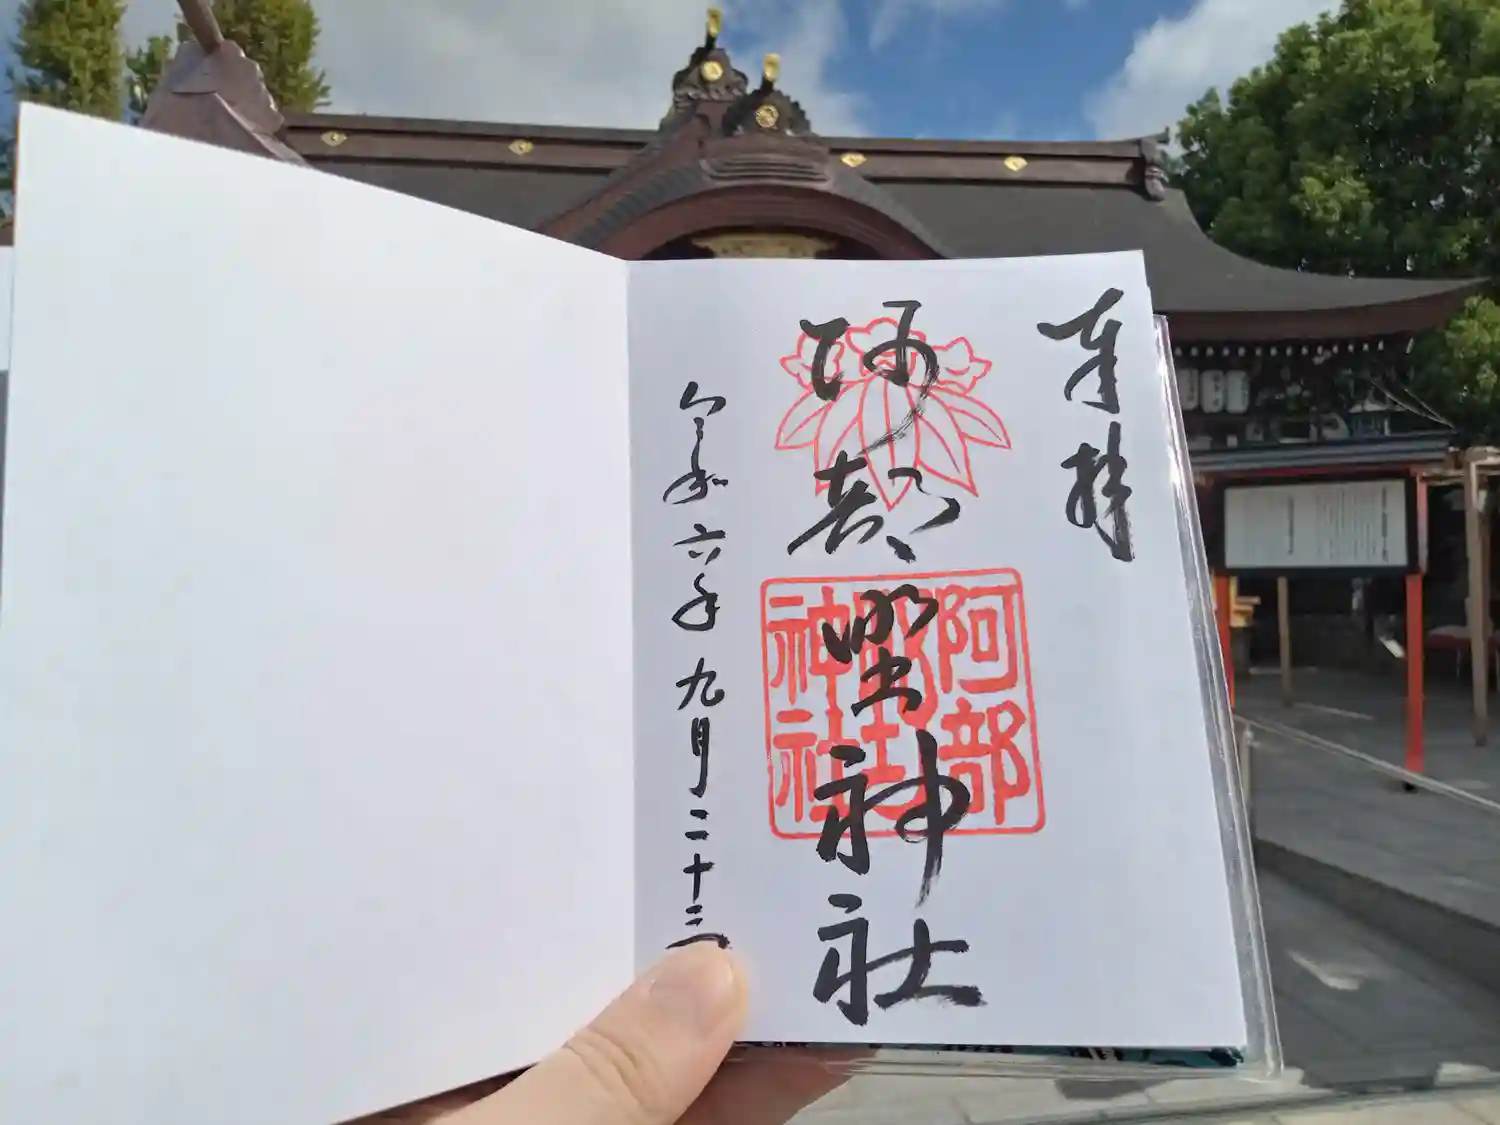 奉拝
阿部野神社
阿部
野
神社
令和六年九月二十三